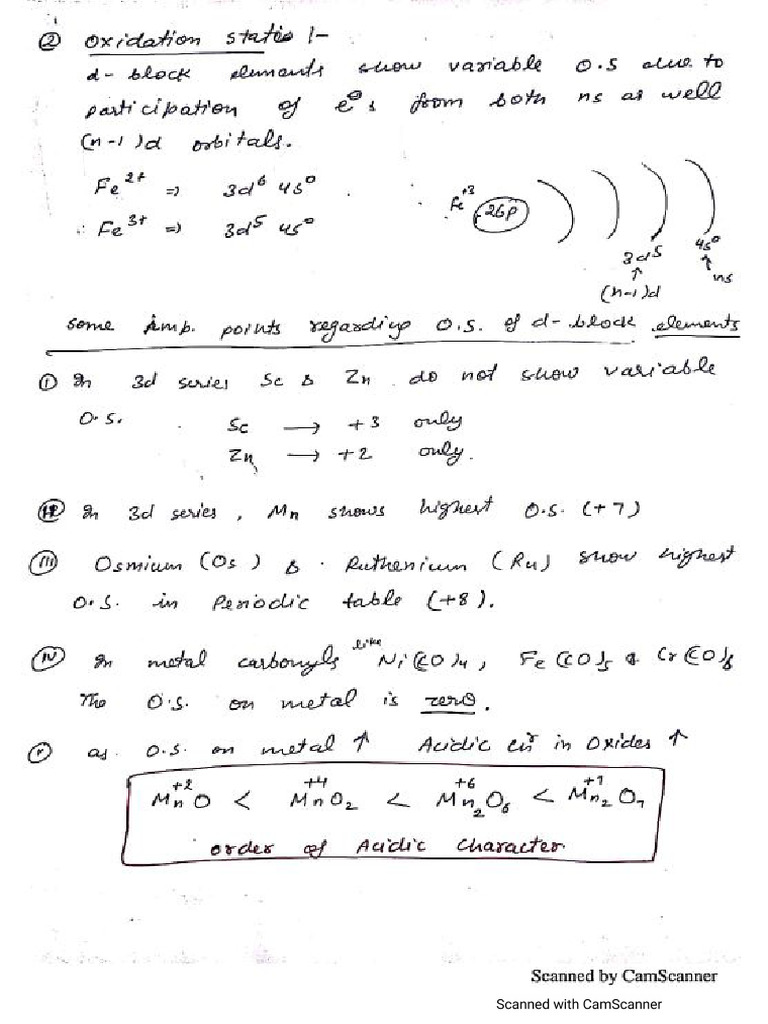 ② Oxidation states :-
d-block elements show variable O.S due to
participation of e⊖s from both ns as well
(n-1)d orbitals.
Fe²⁺ ⇒ 3d⁶ 4s⁰
∴ Fe³⁺ ⇒ 3d⁵ 4s⁰
Fe⁺³ 26P
3d⁵ 4s⁰
↑ ↑
(n-1)d ns
some imp. points regarding O.S. of d-block elements
① In 3d series Sc & Zn do not show variable
O.S.
Sc → +3 only
Zn → +2 only.
ⓘⓘ In 3d series, Mn shows highest O.S. (+7)
(iii) Osmium (Os) & Ruthenium (Ru) show highest
O.S. in Periodic table (+8).
(iv) In metal carbonyls like Ni(CO)₄, Fe(CO)₅ & Cr(CO)₆
The O.S. on metal is zero.
(v) as O.S. on metal ↑ Acidic cʰʳ in Oxides ↑
+2 +4 +6 +7
MnO < MnO₂ < Mn₂O₆ < Mn₂O₇
order of Acidic Character
Scanned by CamScanner
Scanned with CamScanner